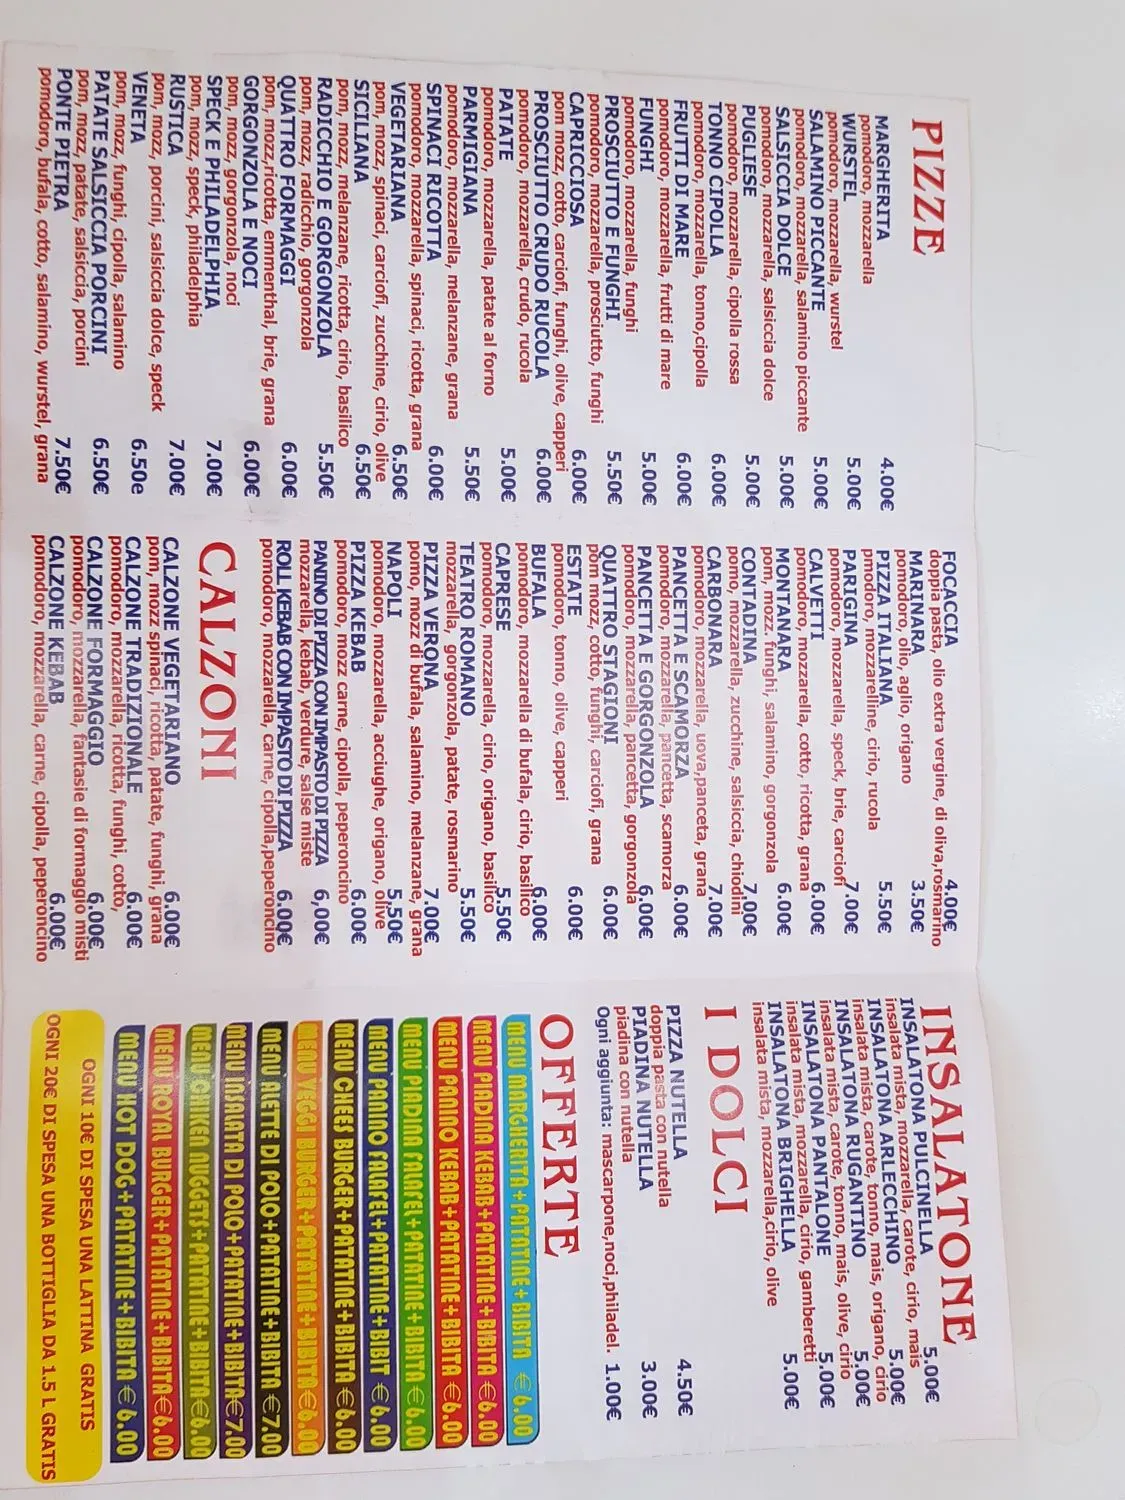 PIZZE
MARGHERITA 4.00€
pomodoro, mozzarella
WURSTEL 5.00€
pomodoro, mozzarella, wurstel
SALAMINO PICCANTE 5.00€
pomodoro, mozzarella, salamino piccante
SALSICCIA DOLCE 5.00€
pomodoro, mozzarella, salsiccia dolce
PUGLIESE 5.00€
pomodoro, mozzarella, cipolla rossa
TONNO CIPOLLA 6.00€
pomodoro, mozzarella, tonno,cipolla
FRUTTI DI MARE 6.00€
pomodoro, mozzarella, frutti di mare
FUNGHI 5.00€
pomodoro, mozzarella, funghi
PROSCIUTTO E FUNGHI 5.50€
pomodoro, mozzarella, prosciutto, funghi
CAPRICCIOSA 6.00€
pom mozz, cotto, carciofi, funghi, olive, capperi
PROSCIUTTO CRUDO RUCOLA 6.00€
pomodoro, mozzarella, crudo, rucola
PATATE 5.00€
pomodoro, mozzarella, patate al forno
PARMIGIANA 5.50€
pomodoro, mozzarella, melanzane, grana
SPINACI RICOTTA 6.00€
pomodoro, mozzarella, spinaci, ricotta, grana
VEGETARIANA 6.50€
pom, mozz, spinaci, carciofi, zucchine, cirio, olive
SICILIANA 6.50€
pom, mozz, melanzane, ricotta, cirio, basilico
RADICCHIO E GORGONZOLA 5.50€
pom, mozz, radicchio, gorgonzola
QUATTRO FORMAGGI 6.00€
pom, mozz,ricotta, emmenthal, brie, grana
GORGONZOLA E NOCI 6.00€
pom, mozz, gorgonzola, noci
SPECK E PHILADELPHIA 7.00€
pom, mozz, speck, philadelphia
RUSTICA 7.00€
pom, mozz, porcini, salsiccia dolce, speck
VENETA 6.50e
pom, mozz, funghi, cipolla, salamino
PATATE SALSICCIA PORCINI 6.50€
pom, mozz, patate, salsiccia, porcini
PONTE PIETRA 7.50€
pomodoro, bufala, cotto, salamino, wurstel, grana
FOCACCIA 4.00€
doppia pasta, olio extra vergine, di oliva,rosmarino
MARINARA 3.50€
pomodoro, olio, aglio, origano
PIZZA ITALIANA 5.50€
pomodoro, mozzarelline, cirio, rucola
PARIGINA 7.00€
pomodoro, mozzarella, speck, brie, carciofi
CALVETTI 6.00€
pomodoro, mozzarella, cotto, ricotta, grana
MONTANARA 6.00€
pom, mozz. funghi, salamino, gorgonzola
CONTADINA 7,00€
pomo, mozzarella, zucchine, salsiccia, chiodini
CARBONARA 7.00€
pomodoro, mozzarella, uova,panceta, grana
PANCETTA E SCAMORZA 6.00€
pomodoro, mozzarella, pancetta, scamorza
PANCETTA E GORGONZOLA 6.00€
pomodoro, mozzarella, pancetta, gorgonzola
QUATTRO STAGIONI 6.00€
pom mozz, cotto, funghi, carciofi, grana
ESTATE 6.00€
pomodoro, tonno, olive, capperi
BUFALA 6.00€
pomodoro, mozzarella di bufala, cirio, basilico
CAPRESE 5.50€
pomodoro, mozzarella, cirio, origano, basilico
TEATRO ROMANO 5.50€
mozzarella, gorgonzola, patate, rosmarino
PIZZA VERONA 7.00€
pomo, mozz di bufala, salamino, melanzane, grana
NAPOLI 5.50€
pomodoro, mozzarella, acciughe, origano, olive
PIZZA KEBAB 6.00€
pomodoro, mozz carne, cipolla, peperoncino
PANINO DI PIZZA CON IMPASTO DI PIZZA 6,00€
mozzarella, kebab, verdure, salse miste
ROLL KEBAB CON IMPASTO DI PIZZA 6.00€
pomodoro, mozzarella, carne, cipolla,peperoncino
CALZONI
CALZONE VEGETARIANO 6.00€
pom, mozz spinaci, ricotta, patate, funghi, grana
CALZONE TRADIZIONALE 6.00€
pomodoro, mozzarella, ricotta, funghi, cotto,
CALZONE FORMAGGIO 6.00€
pomodoro, mozzarella, fantasie di formaggio misti
CALZONE KEBAB 6.00€
pomodoro, mozzarella, carne, cipolla, peperoncino
INSALATONE
INSALATONA PULCINELLA 5.00€
insalata mista, mozzarella, carote, cirio, mais
INSALATONA ARLECCHINO 5.00€
insalata mista, carote, tonno, mais, origano, cirio
INSALATONA RUGANTINO 5.00€
insalata mista, carote, tonno, mais, olive, cirio
INSALATONA PANTALONE 5.00€
insalata mista, mozzarella, cirio, gamberetti
INSALATONA BRIGHELLA 5.00€
insalata mista, mozzarella,cirio, olive
I DOLCI
PIZZA NUTELLA 4.50€
doppia pasta con nutella
PIADINA NUTELLA 3.00€
piadina con nutella
Ogni aggiunta: mascarpone,noci,philadel. 1.00€
OFFERTE
MENU MARGHERITA+PATATINE+BIBITA €6.00
MENU PIADINA KEBAB+PATATINE+BIBITA €6.00
MENU PANINO KEBAB+PATATINE+BIBITA €6.00
MENU PIADINA FALAFEL+PATATINE+BIBITA €6.00
MENU PANINO FALAFEL+PATATINE+BIBIT €6.00
MENU CHEES BURGER+PATATINE+BIBITA €6.00
MENU VEGGI BURGER+PATATINE+BIBITA€6.00
MENU ALETTE DI POLO+PATATINE+BIBITA €7.00
MENU INSALATA DI POLO+PATATINE+BIBITA€7.00
MENU CHIKEN NUGGETS+PATATINE+BIBITA€6.00
MENU ROYAL BURGER+PATATINE+BIBITA€6.00
MENU HOT DOG+PATATINE+BIBITA €6.00
OGNI 10€ DI SPESA UNA LATTINA GRATIS
OGNI 20€ DI SPESA UNA BOTTIGLIA DA 1.5 L GRATIS